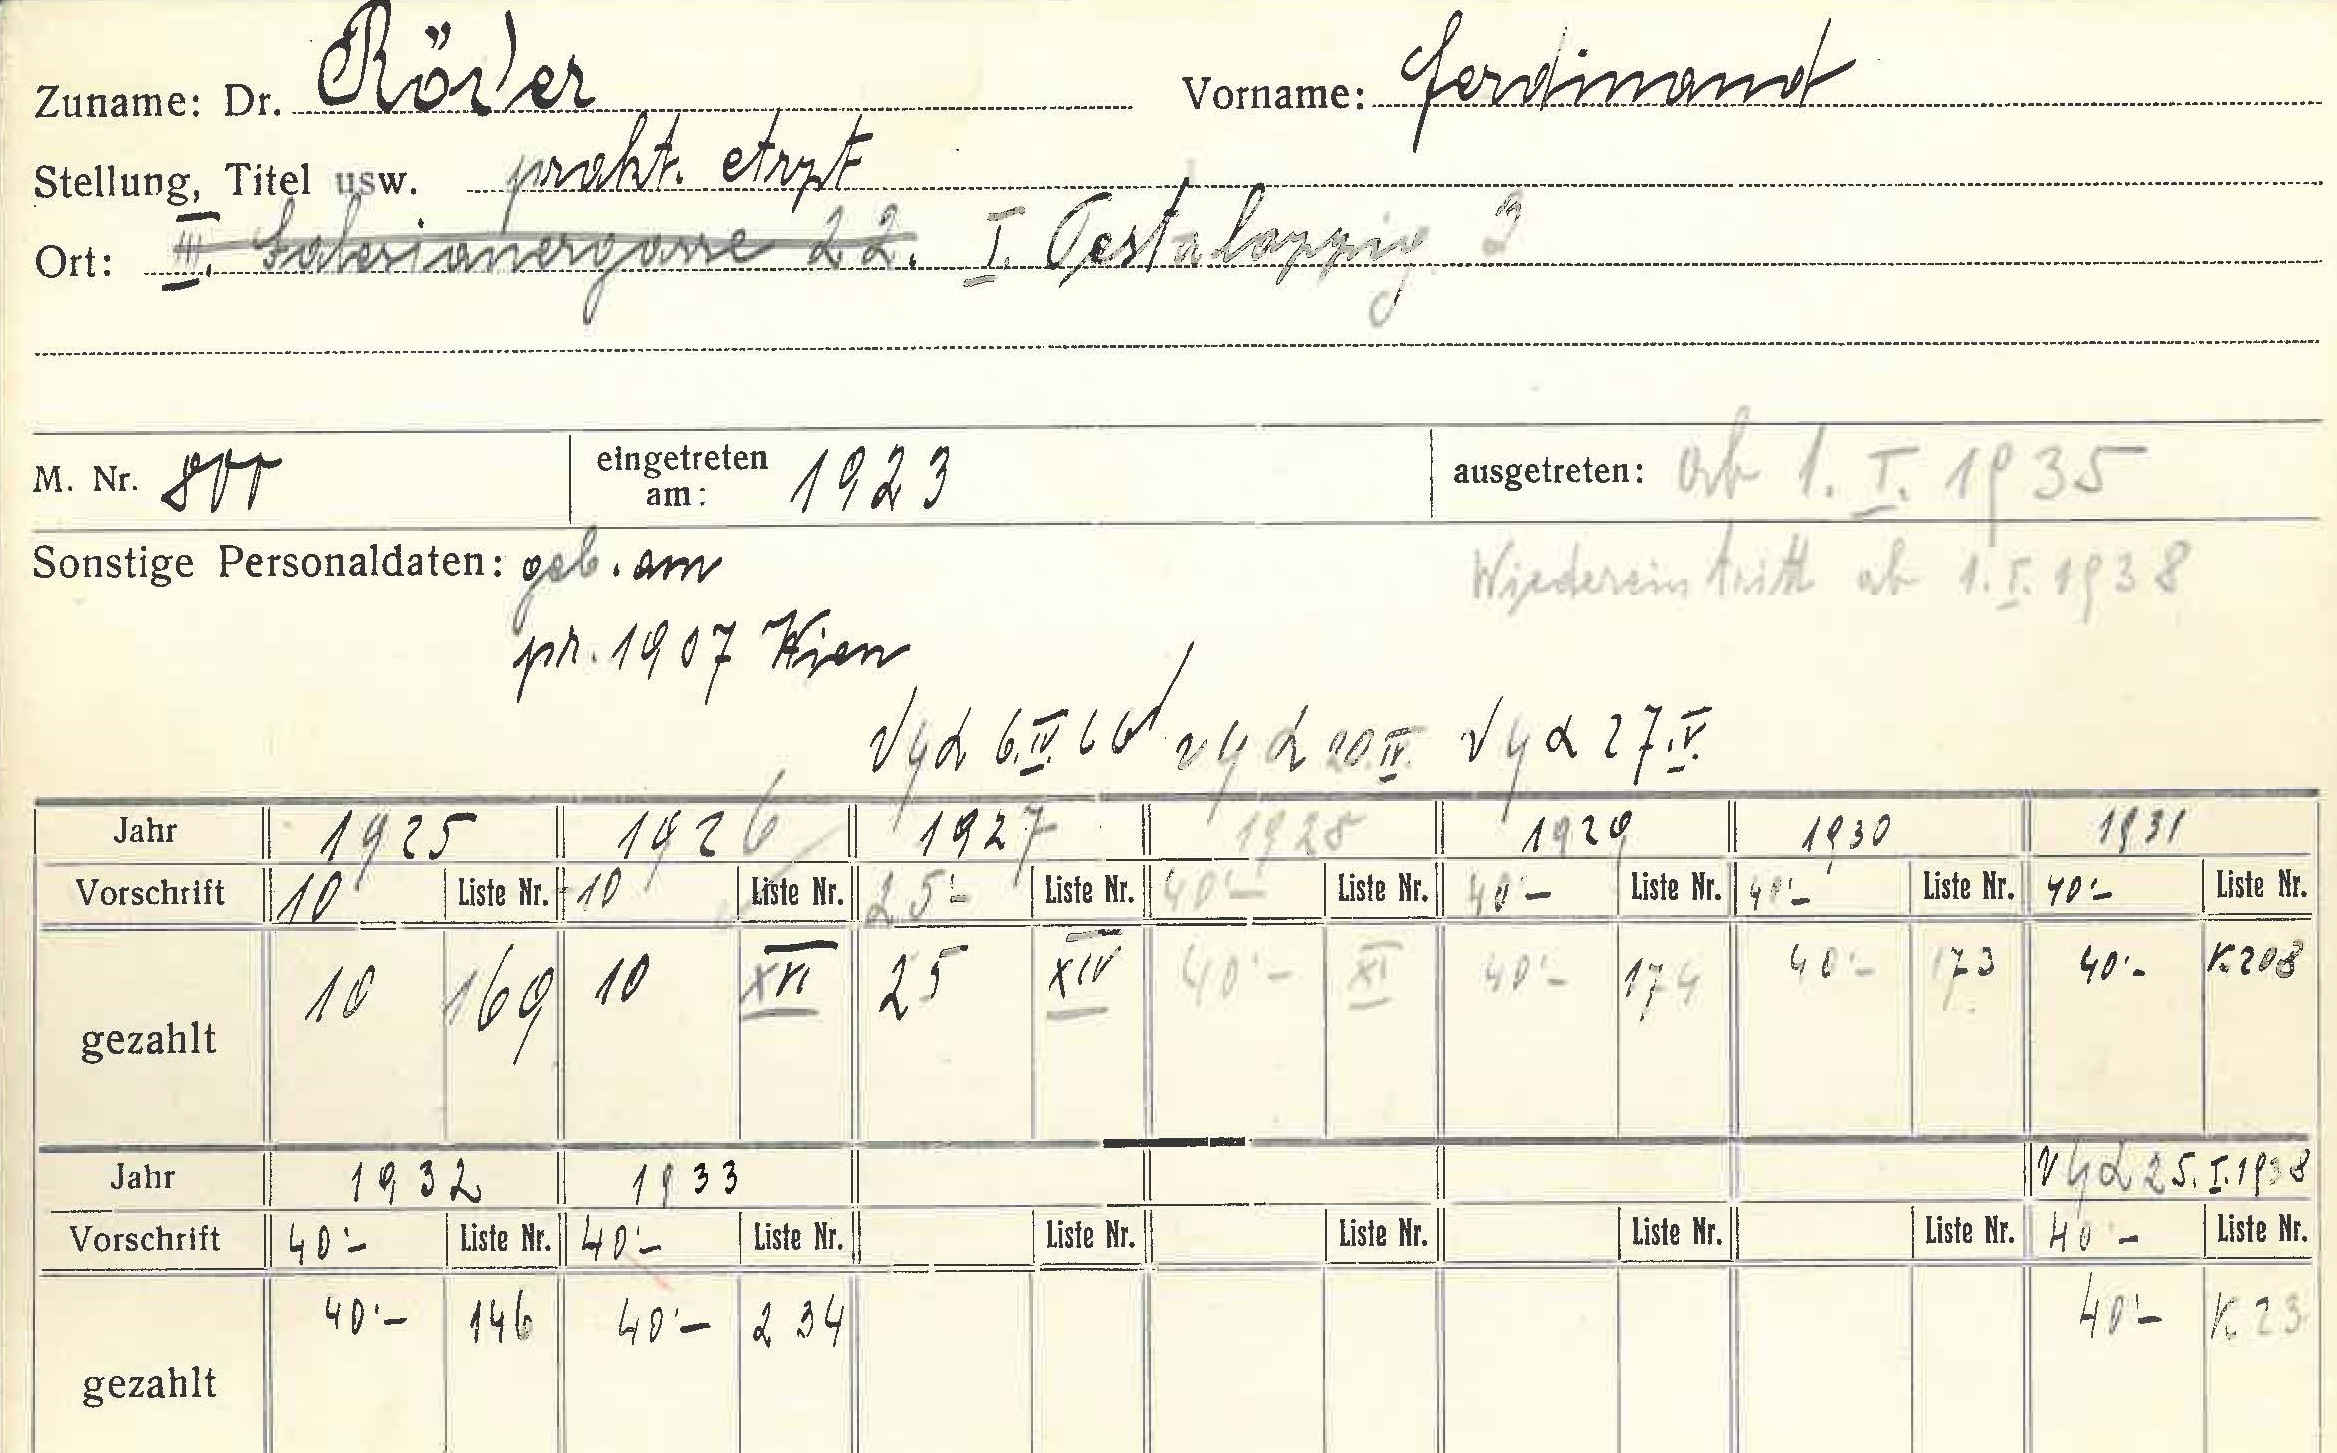 Zuname: Dr. Röder Vorname: Ferdinand
Stellung, Titel usw. prakt. Arzt
Ort: III. Salesianergasse 22. I. Pestalozzig. 3
M. Nr. eingetreten am: 1923 ausgetreten: ab 1. I. 1935
Sonstige Personaldaten: geb. am Wiedereintritt ab 1. I. 1938
pr. 1907 Wien
6.IV. 20.IV. 27.V.
Jahr 1925 1926 1927 1928 1929 1930 1931
Vorschrift 10 Liste Nr. 10 Liste Nr. 25'- Liste Nr. 40'- Liste Nr. 40'- Liste Nr. 40'- Liste Nr. 40'- Liste Nr.
gezahlt 10 169 10 XVI 25 XIV 40'- XI 40'- 174 40'- 173 40'- K 208
Jahr 1932 1933 25. I. 1938
Vorschrift 40'- Liste Nr. 40'- Liste Nr. Liste Nr. Liste Nr. Liste Nr. Liste Nr. 40'- Liste Nr.
gezahlt 40'- 146 40'- 234 40'- K 23